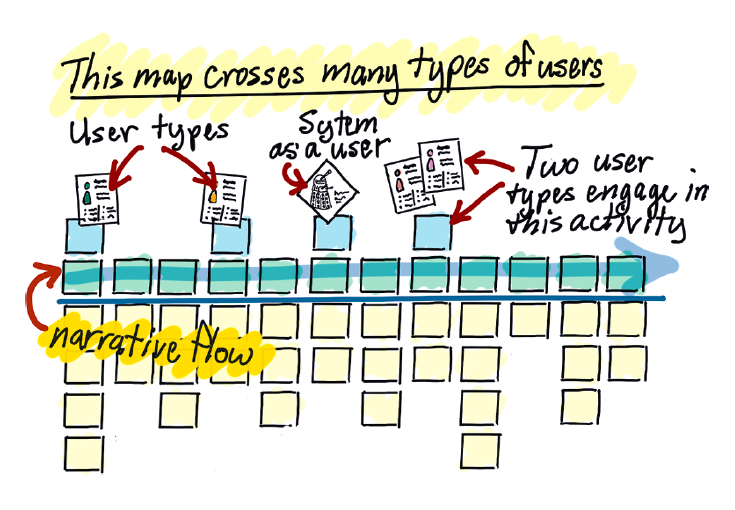 This map crosses many types of users
User types
Sytem
as a user
Two user
types engage in
this activity
narrative flow